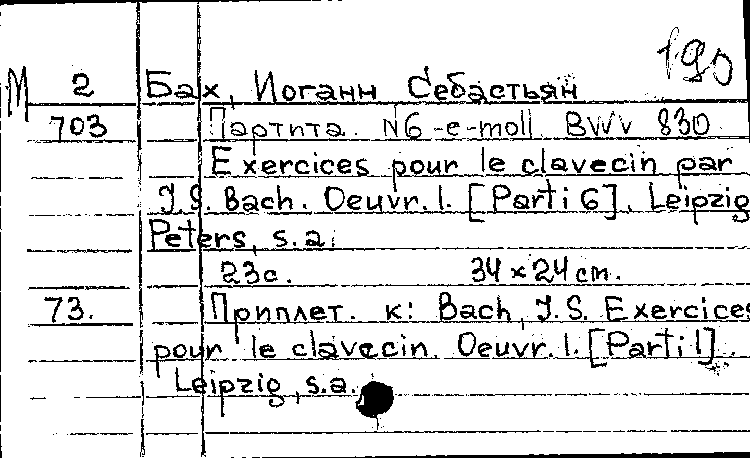 190
М 2 Бах, Иоганн Себастьян
703 Партита. N6-e-moll. BWV 830
Exercices pour le clavecin par
J.S. Bach. Oeuvr.1. [Parti 6]. Leipzig
Peters, s.a.
23с. 34x24 cm.
73. Приплет. к: Bach, J.S. Exercices
pour le clavecin. Oeuvr.1. [Parti 1]
Leipzig, s.a.